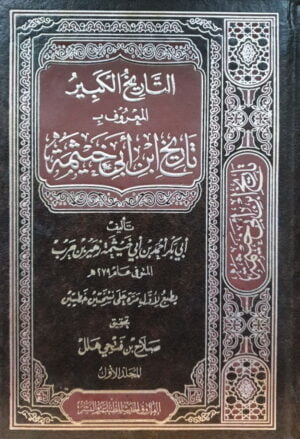 التاريخ الكبير
المعروف بـ
تاريخ ابن أبي خيثمة
تأليف
أبي بكر أحمد بن أبي خيثمة زهير بن حرب
المتوفى عام ٢٧٩ هـ
يطبع لأول مرة على نسختين خطيتين
تحقيق
صلاح بن فتحي هلل
المجلد الأول
الفاروق الحديثة للطباعة والنشر
تاريخ ابن أبي خيثمة